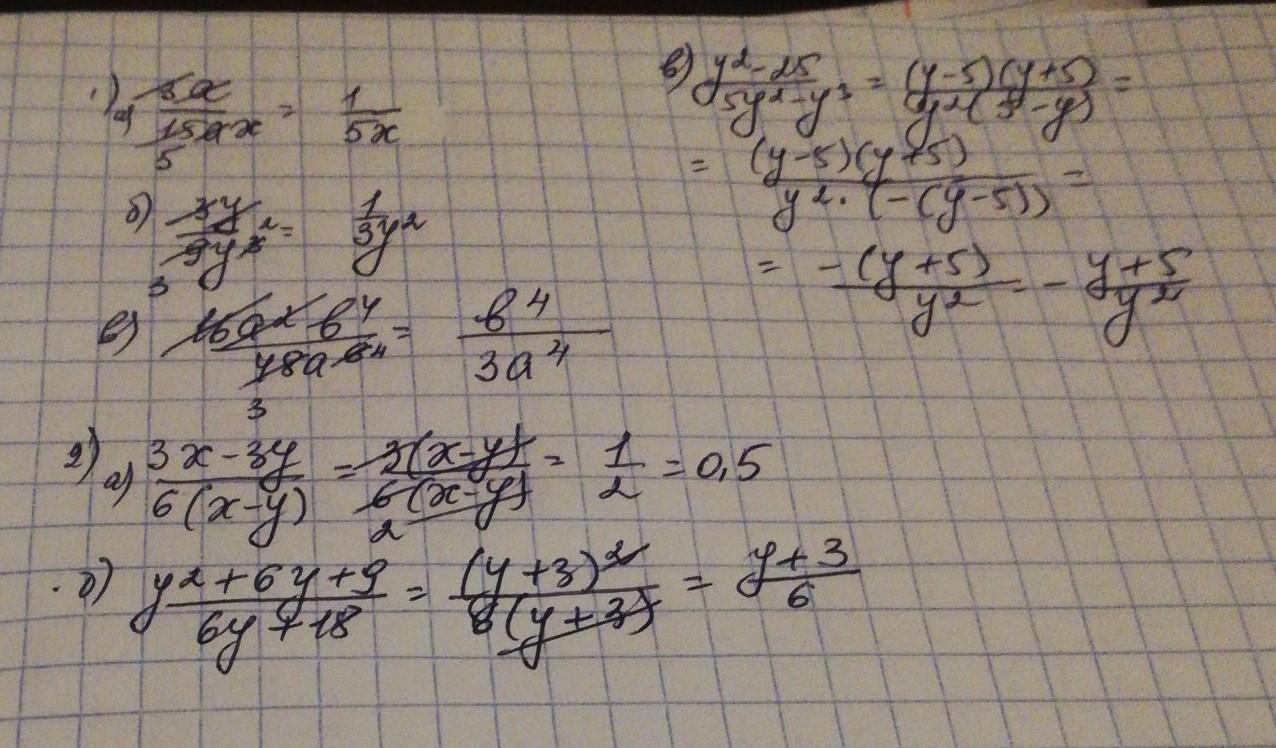 1) а) 3a/15ax = 1/5x
5
б) 3y/9y³ ² = 1/3y²
3
в) 16a² b⁴/48a b⁴ = b⁴/3a⁴
3
2) а) 3x-3y/6(x-y) = 3(x-y)/6(x-y) = 1/2 = 0,5
2
б) y²+6y+9/6y+18 = (y+3)²/6(y+3) = y+3/6
в) y²-25/5y²-y³ = (y-5)(y+5)/y²(5-y) =
= (y-5)(y+5)/y²·(-(y-5)) =
= -(y+5)/y² = - y+5/y²